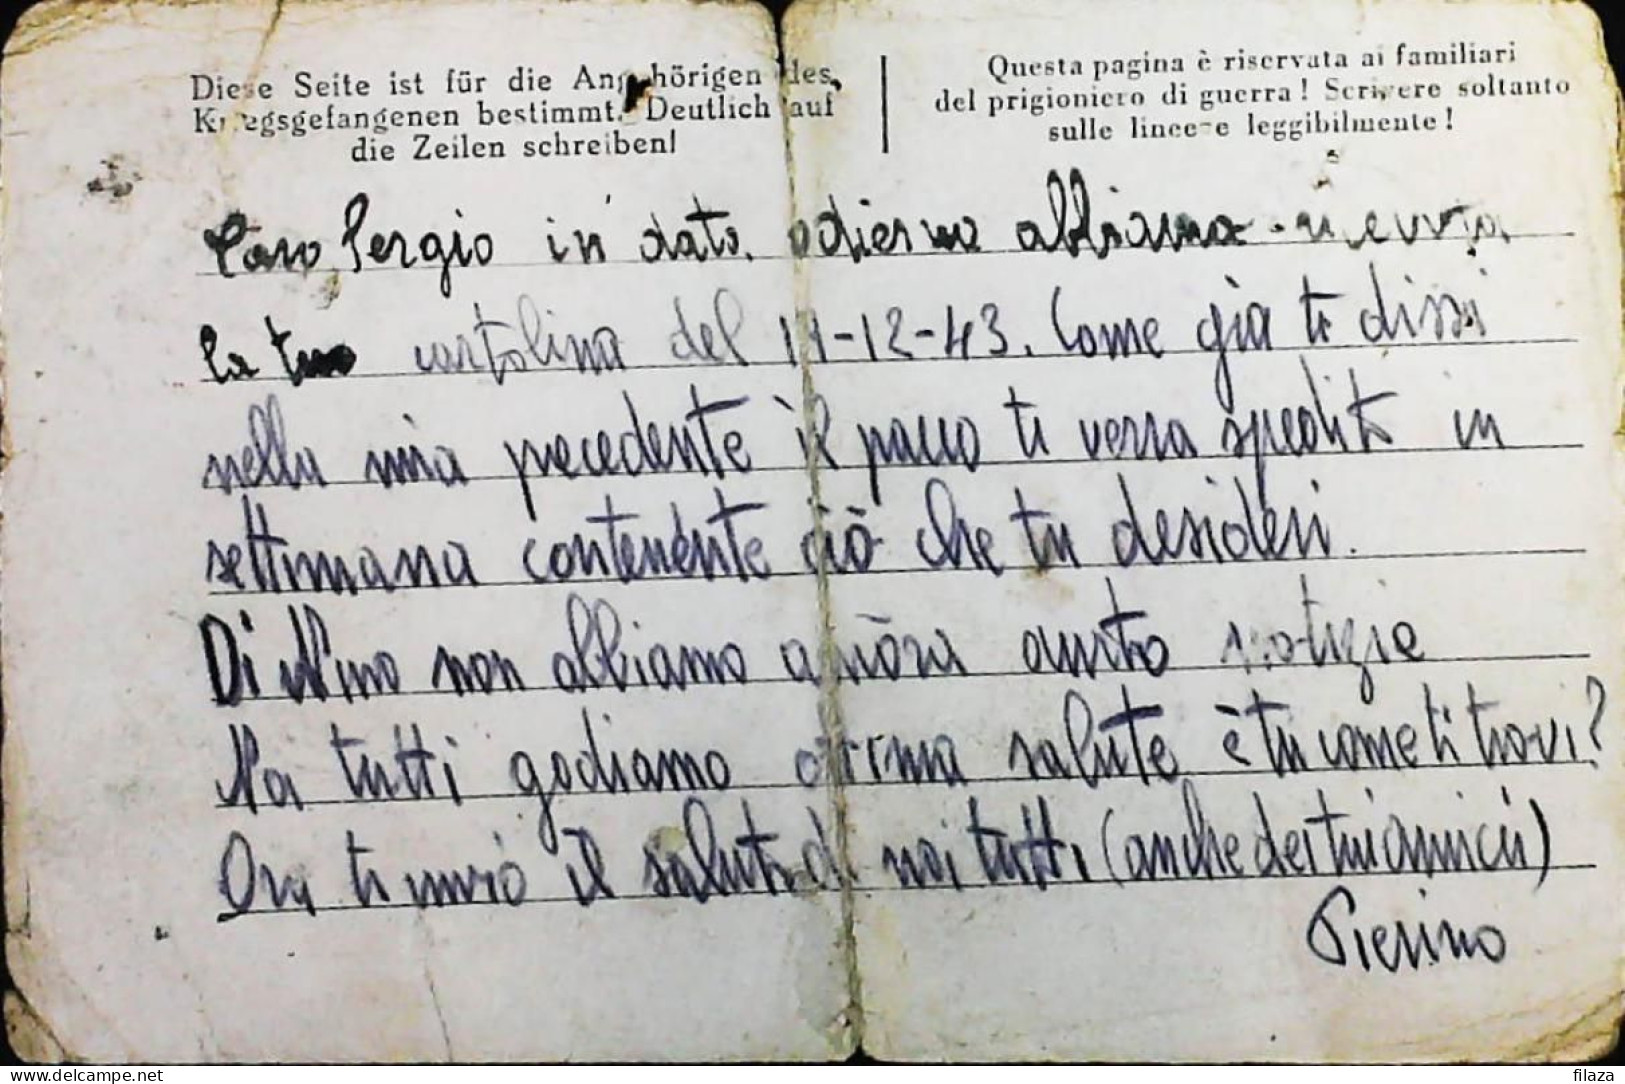 Diese Seite ist für die Angehörigen des
Kriegsgefangenen bestimmt. Deutlich auf
die Zeilen schreiben!
Questa pagina è riservata ai familiari
del prigioniero di guerra! Scrivere soltanto
sulle linee e leggibilmente!
Caro Sergio in data odierna abbiamo ricevuta
la tua cartolina del 11-12-43. Come già ti dissi
nella mia precedente il pacco ti verra spedito in
settimana contenente ciò che tu desideri.
Di Nino non abbiamo ancora avuto notizie
Noi tutti godiamo ottima salute è tu come ti trovi?
Ora ti invio il saluto di noi tutti (anche dei tuoi amici)
Pierino
www.delcampe.net
filaza